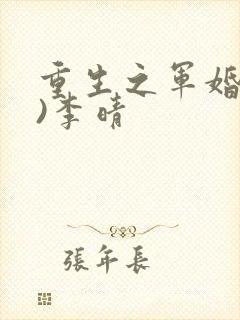 重生之军婚
)李晴
張年長